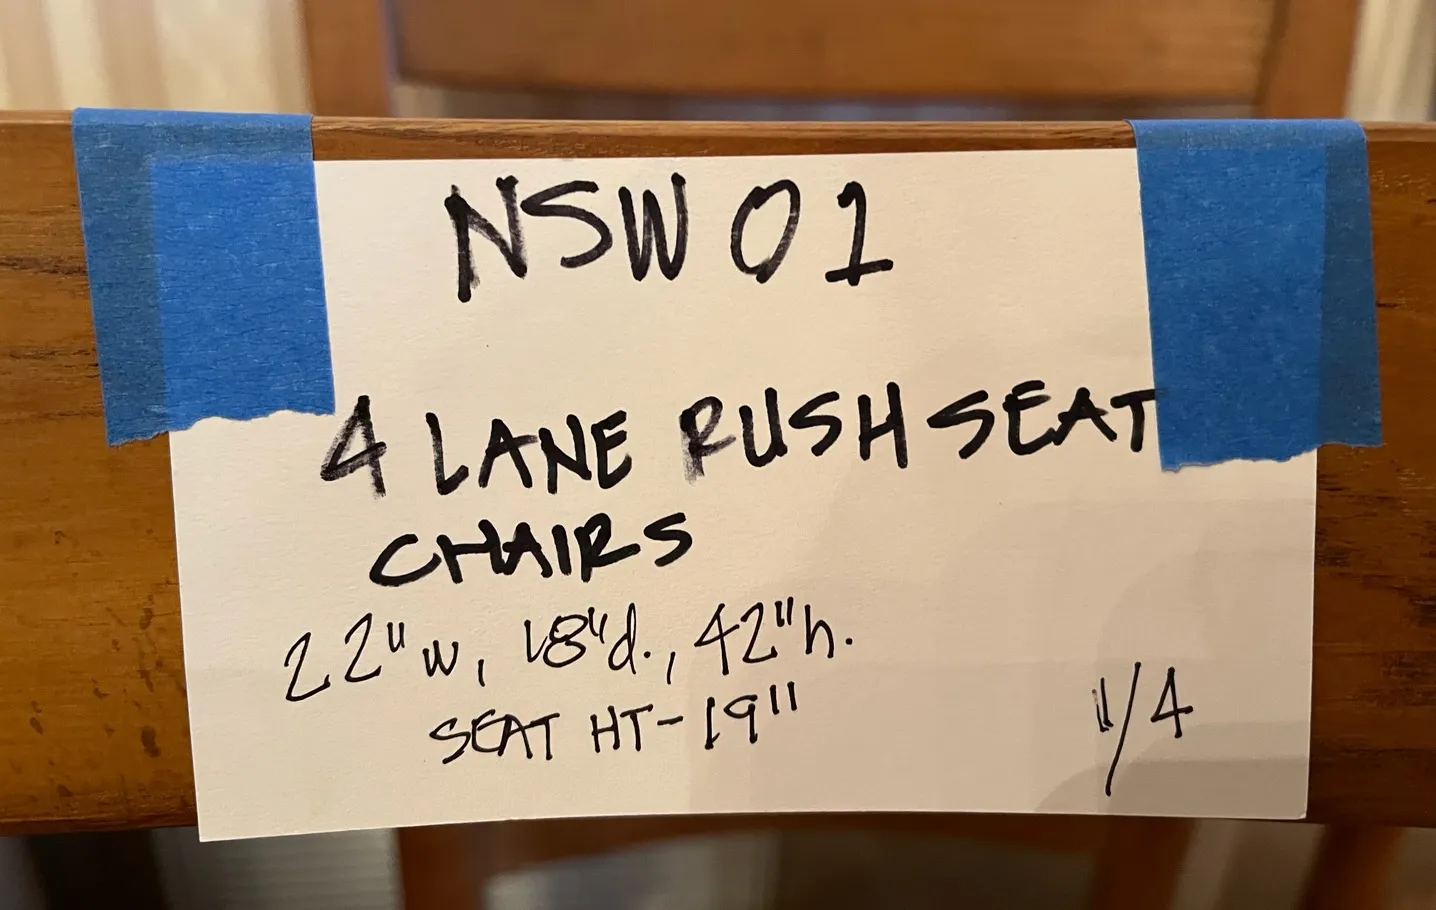 NSW 01
4 LANE RUSH SEAT
CHAIRS
22"w, 18"d., 42"h.
SEAT HT-19"
11/4